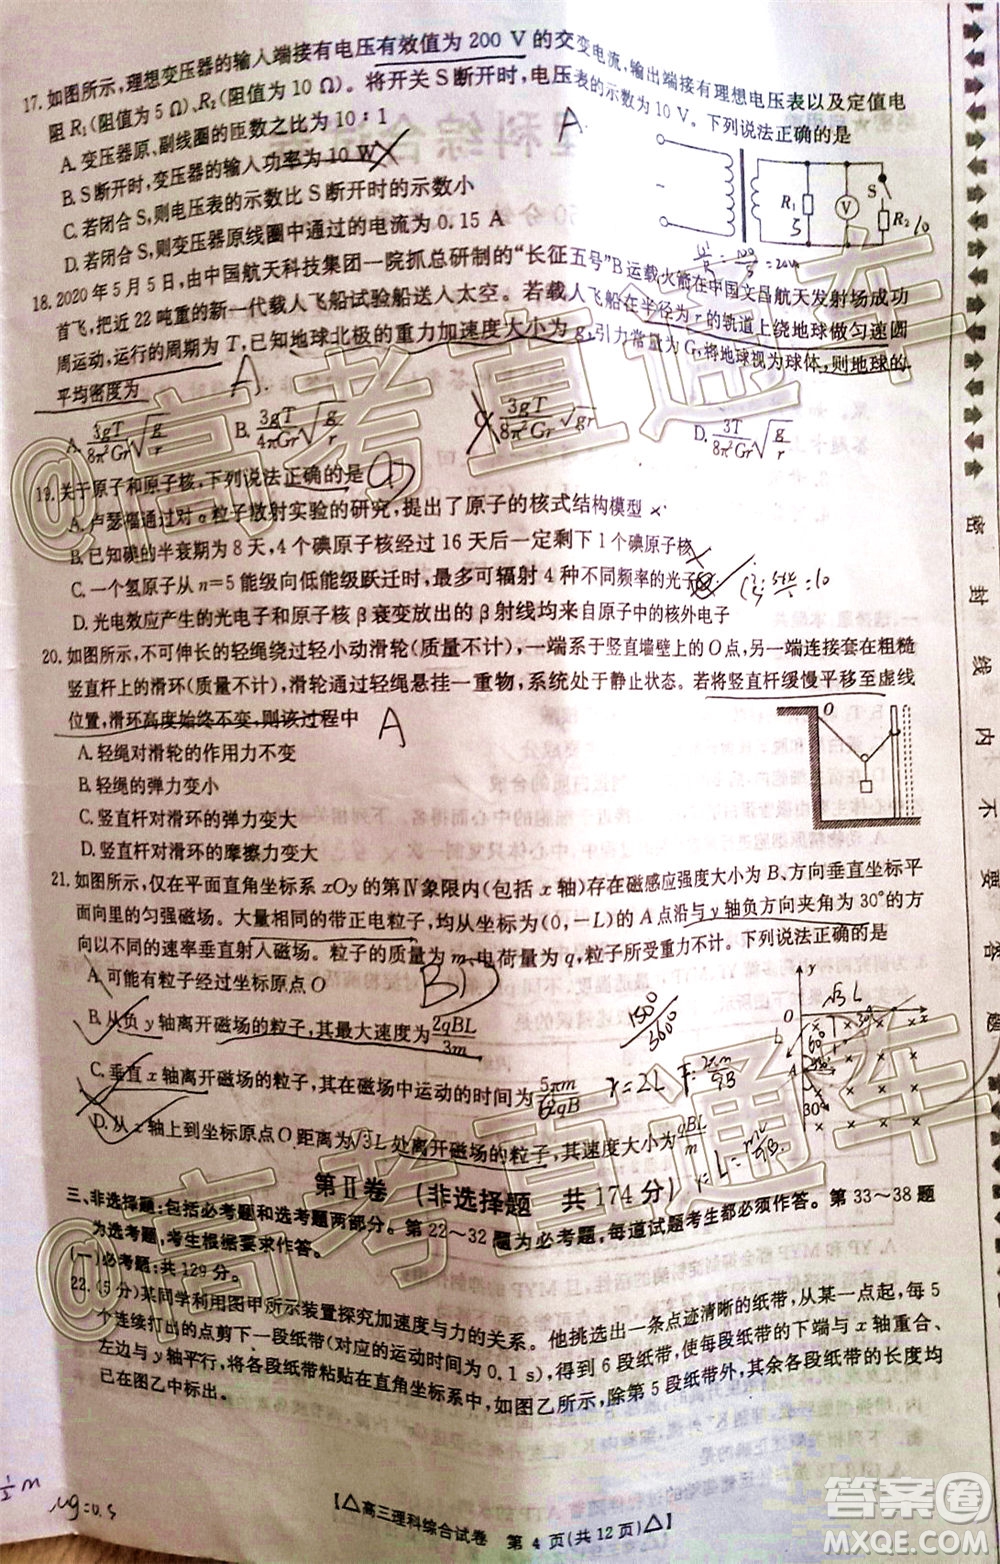 17. 如图所示,理想变压器的输入端接有电压有效值为 200 V 的交变电流,输出端接有理想电压表以及定值电
阻 R₁(阻值为 5 Ω)、R₂(阻值为 10 Ω)。将开关 S 断开时,电压表的示数为 10 V。下列说法正确的是
A
A. 变压器原、副线圈的匝数之比为 10 : 1
B. S 断开时,变压器的输入功率为 10 W
C. 若闭合 S,则电压表的示数比 S 断开时的示数小
D. 若闭合 S,则变压器原线圈中通过的电流为 0.15 A
R₁
5
V
S
R₂
10
18. 2020 年 5 月 5 日,由中国航天科技集团一院抓总研制的“长征五号”B 运载火箭在中国文昌航天发射场成功
首飞,把近 22 吨重的新一代载人飞船试验船送入太空。若载人飞船在半径为 r 的轨道上绕地球做匀速圆
周运动,运行的周期为 T,已知地球北极的重力加速度大小为 g,引力常量为 G,将地球视为球体,则地球的
平均密度为
A.
A. 3gT/8π²Gr √(g/r)
B. 3gT/4π²Gr √(g/r)
C. 3gT/8π²Gr √gr
D. 3T/8π²Gr √(g/r)
19. 关于原子和原子核,下列说法正确的是
A. 卢瑟福通过对 α 粒子散射实验的研究,提出了原子的核式结构模型
B. 已知碘的半衰期为 8 天,4 个碘原子核经过 16 天后一定剩下 1 个碘原子核
C. 一个氢原子从 n=5 能级向低能级跃迁时,最多可辐射 4 种不同频率的光子
D. 光电效应产生的光电子和原子核 β 衰变放出的 β 射线均来自原子中的核外电子
20. 如图所示,不可伸长的轻绳绕过轻小动滑轮(质量不计),一端系于竖直墙壁上的 O 点,另一端连接套在粗糙
竖直杆上的滑环(质量不计),滑轮通过轻绳悬挂一重物,系统处于静止状态。若将竖直杆缓慢平移至虚线
位置,滑环高度始终不变,则该过程中
A
A. 轻绳对滑轮的作用力不变
B. 轻绳的弹力变小
C. 竖直杆对滑环的弹力变大
D. 竖直杆对滑环的摩擦力变大
O
21. 如图所示,仅在平面直角坐标系 xOy 的第Ⅳ象限内(包括 x 轴)存在磁感应强度大小为 B、方向垂直坐标平
面向里的匀强磁场。大量相同的带正电粒子,均从坐标为(0,-L)的 A 点沿与 y 轴负方向夹角为 30°的方
向以不同的速率垂直射入磁场。粒子的质量为 m、电荷量为 q,粒子所受重力不计。下列说法正确的是
BD
A. 可能有粒子经过坐标原点 O
B. 从负 y 轴离开磁场的粒子,其最大速度为 2qBL/3m
C. 垂直 x 轴离开磁场的粒子,其在磁场中运动的时间为 5πm/6qB
D. 从 x 轴上到坐标原点 O 距离为√3L 处离开磁场的粒子,其速度大小为 qBL/m
150°/360°
r=2L
y
O
x
√3 L
A
30°
第Ⅱ卷 (非选择题 共 174 分)
三、非选择题:包括必考题和选考题两部分。第 22~32 题为必考题,每道试题考生都必须作答。第 33~38 题
为选考题,考生根据要求作答。
(一)必考题:共 129 分。
22. (5 分)某同学利用图甲所示装置探究加速度与力的关系。他挑选出一条点迹清晰的纸带,从某一点起,每 5
个连续打出的点剪下一段纸带(对应的运动时间为 0.1 s),得到 6 段纸带,将各段纸带的下端与 x 轴重合、
左边与 y 轴平行,将各段纸带粘贴在直角坐标系中,如图乙所示,除第 5 段纸带外,其余各段纸带的长度均
已在图乙中标出。
½ m
μg=0.5
【△高三理科综合试卷 第 4 页(共 12 页)△】
密 封 线 内 不 要 答 题
@高考直通车
@高考直通车
答案圈
MXQE.COM